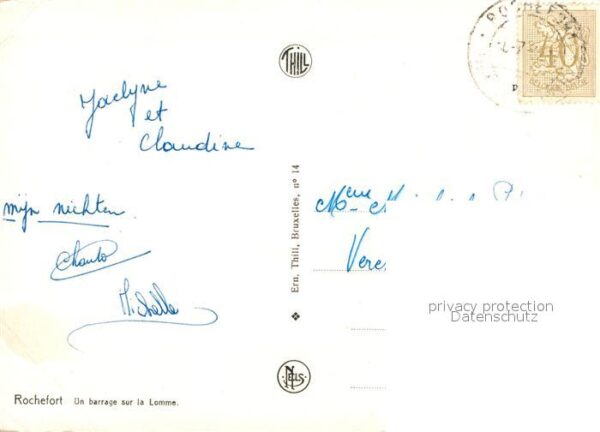 THILL
ROCHEFORT
40
Jaclyne
et
Claudine
mijn nichten
Michelle
Ern. Thill, Bruxelles, n° 14
Vere
privacy protection
Datenschutz
NELS
Rochefort Un barrage sur la Lomme.